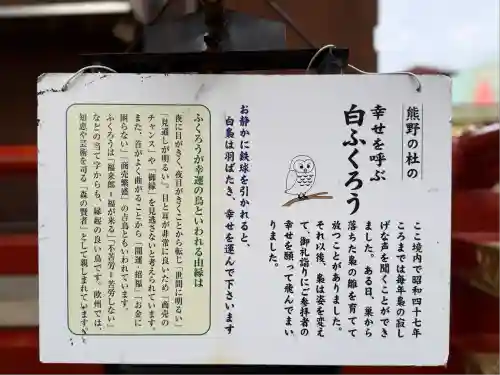 熊野の杜の
幸せを呼ぶ
白ふくろう
ここ境内で昭和四十七年
ころまでは毎年梟の寂し
げな声を聞くことができ
ました。ある日、巣から
落ちた梟の雛を育てて
放つことがありました。
それ以後、梟は姿を変え
て、御礼詣りにご参拝者の
幸せを願って飛んでまい
りました。
お静かに鉄球を引かれると、
白梟は羽ばたき、幸せを運んで下さいます
ふくろうが幸運の鳥といわれる由縁は
夜に目がきく、夜目がきくことから転じ「世間に明るい」
「見通しが明るい」。目と耳が非常に良いため「商売の
チャンス」や「御縁」を見逃さないと考えられています。
また、首がよく曲がることから「開運・招福」「お金に
困らない」「商売繁盛」の占鳥ともいわれています。
ふくろうは「福来郎＝福が来る」「不苦労＝苦労しない」
などの当て字からも、縁起の良い鳥です。欧州では、
知恵や芸術を司る「森の賢者」として親しまれています